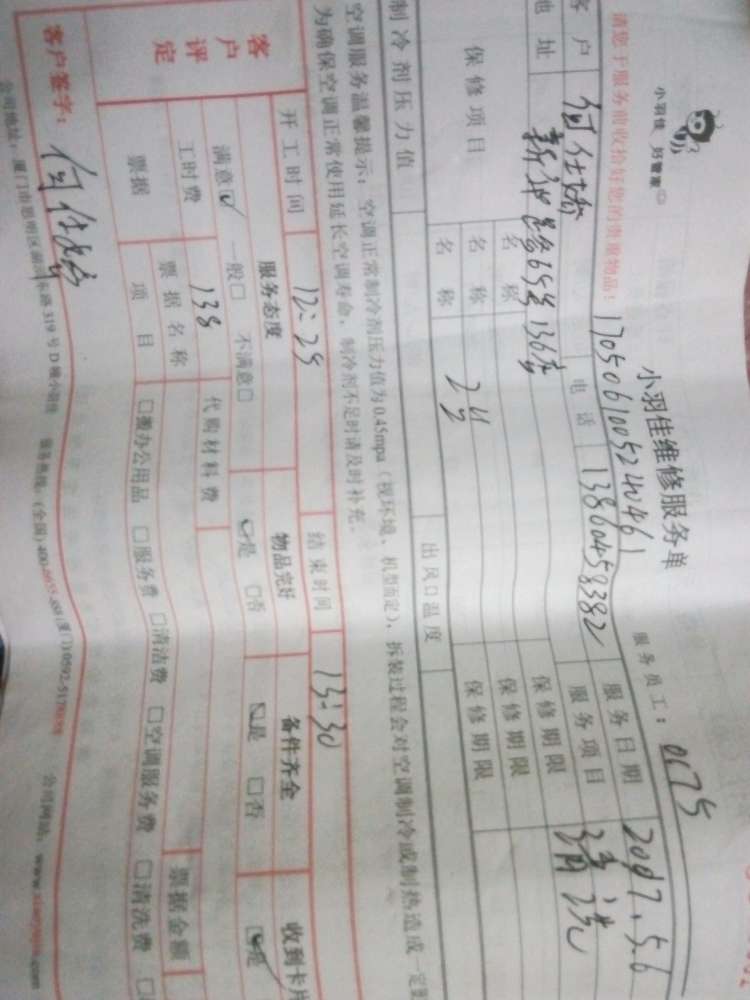 小羽佳 好管家
小羽佳维修服务单
服务员工：0175
请您于服务前收拾好您的贵重物品！
客户 何仕娇 电话 13860458382 服务日期 2017.5.6
地址 服务项目 清洗
保修项目 名称 保修期限
名称 保修期限
名称 保修期限
制冷剂压力值 出风口温度
空调服务温馨提示：空调正常制冷剂压力值为0.45mpa（视环境、机型而定），拆装过程会对空调制冷或制热造成一定
为确保空调正常使用延长空调寿命，制冷剂不足时请及时补充。
开工时间 12:25 结束时间 13:30
客户评定 服务态度 物品完好 备件齐全 收到卡片
满意☑ 一般□ 不满意□ ☑是 □否 ☑是 □否 ☑是
工时费 138 代购材料费
票据 票据名称 票据金额
项目 □搬办公用品 □服务费 □清洁费 □空调服务费 □清洗费
客户签字：何仕娇
公司地址：厦门市思明区 319号D栋小羽佳 服务热线：(全国) (厦门) 公司网站：